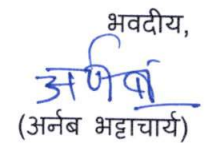 भवदीय,
अर्णब
(अर्नब भट्टाचार्य)